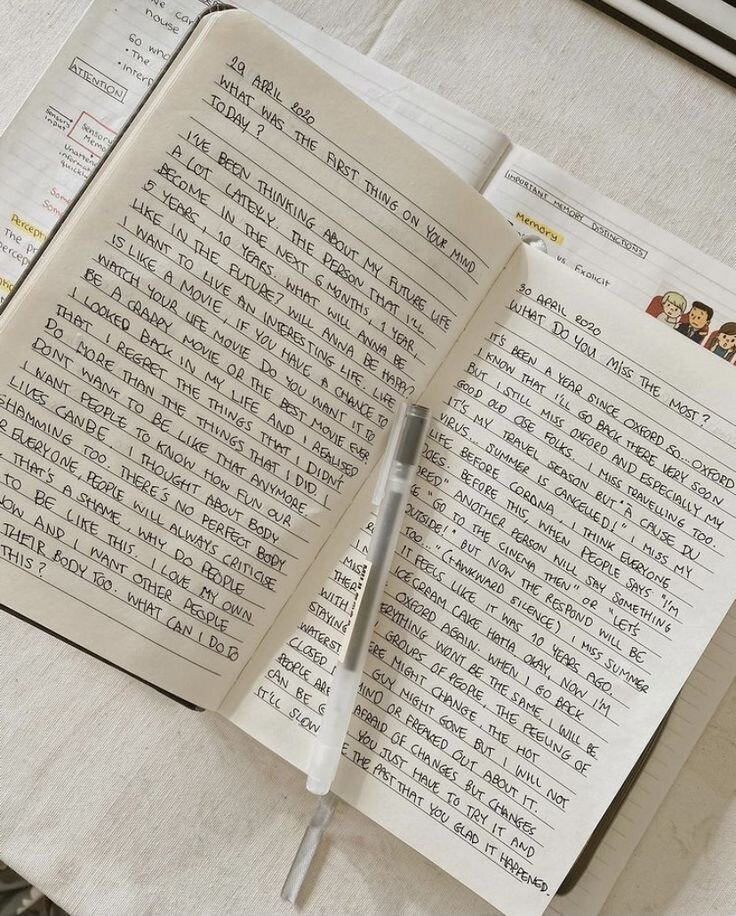 we can
house
Go who
• The
• Interf
ATTENTION
Sensory
input
Sensory
Memo
Unatten
informat
quickl
Some
Some
Percept
The pr
percep
29 APRIL 2020
WHAT WAS THE FIRST THING ON YOUR MIND
TODAY?
I'VE BEEN THINKING ABOUT MY FUTURE LIFE
A LOT LATELY. THE PERSON THAT I'LL
BECOME IN THE NEXT 6 MONTHS, 1 YEAR,
5 YEARS, 10 YEARS. WHAT WILL ANNA BE
LIKE IN THE FUTURE? WILL ANNA BE HAPPY?
I WANT TO LIVE AN INTERESTING LIFE. LIFE
IS LIKE A MOVIE, IF YOU HAVE A CHANCE TO
WATCH YOUR LIFE MOVIE DO YOU WANT IT TO
BE A CRAPPY MOVIE OR THE BEST MOVIE EVER
I LOOKED BACK IN MY LIFE AND I REALISED
THAT I REGRET THE THINGS THAT I DIDNT
DO MORE THAN THE THINGS THAT I DID. I
DONT WANT TO BE LIKE THAT ANYMORE.
I WANT PEOPLE TO KNOW HOW FUN OUR
LIVES CANBE. I THOUGHT ABOUT BODY
SHAMMING TOO. THERE'S NO PERFECT BODY
R EVERYONE. PEOPLE WILL ALWAYS CRITICISE
THAT'S A SHAME. WHY DO PEOPLE
TO BE LIKE THIS. I LOVE MY OWN
OW AND I WANT OTHER PEOPLE
THEIR BODY TOO. WHAT CAN I DO TO
THIS?
IMPORTANT MEMORY DISTINCTIONS
Memory
vs. Explicit
30 APRIL 2020
WHAT DO YOU MISS THE MOST?
IT'S BEEN A YEAR SINCE OXFORD SO... OXFORD
I KNOW THAT I'LL GO BACK THERE VERY SOON
BUT I STILL MISS OXFORD AND ESPECIALLY MY
GOOD OLD OSE FOLKS. I MISS TRAVELLING TOO.
IT'S MY TRAVEL SEASON BUT "A CAUSE DU
VIRUS... SUMMER IS CANCELLED!" I MISS MY
LIFE BEFORE CORONA, I THINK EVERYONE
DOES. BEFORE THIS, WHEN PEOPLE SAYS "I'M
ORED" ANOTHER PERSON WILL SAY SOMETHING
E "GO TO THE CINEMA THEN" OR "LET'S
OUTSIDE!" BUT NOW THE RESPOND WILL BE
TOO..." (*AWKWARD SILENCE) I MISS SUMMER
MISS ICECREAM CAKE HAHA OKAY, NOW I'M
IT FEELS LIKE IT WAS 10 YEARS AGO.
WITH OXFORD AGAIN. WHEN I GO BACK
THER ERYTHING WONT BE THE SAME. I WILL BE
STAYING GROUPS OF PEOPLE, THE PEELING OF
WATERST ERE MIGHT CHANGE, THE HOT
CLOSED GUY MIGHT GONE BUT I WILL NOT
MIND OR FREAKED OUT ABOUT IT.
PEOPLE ARE AFRAID OF CHANGES BUT CHANGES
CAN BE G YOU JUST HAVE TO TRY IT AND
IT'LL SLOW E THE PAST THAT YOU GLAD IT HAPPENED.